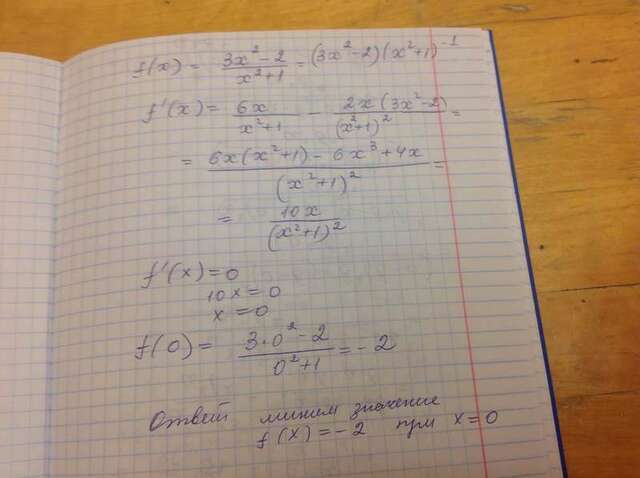 f(x) = (3x² - 2)/(x² + 1) = (3x² - 2)(x² + 1)⁻¹
f'(x) = 6x/(x² + 1) - 2x(3x² - 2)/(x² + 1)² =
= (6x(x² + 1) - 6x³ + 4x)/(x² + 1)² =
= 10x/(x² + 1)²
f'(x) = 0
10x = 0
x = 0
f(0) = (3·0² - 2)/(0² + 1) = -2
Ответ миним значение
f(x) = -2 при x = 0